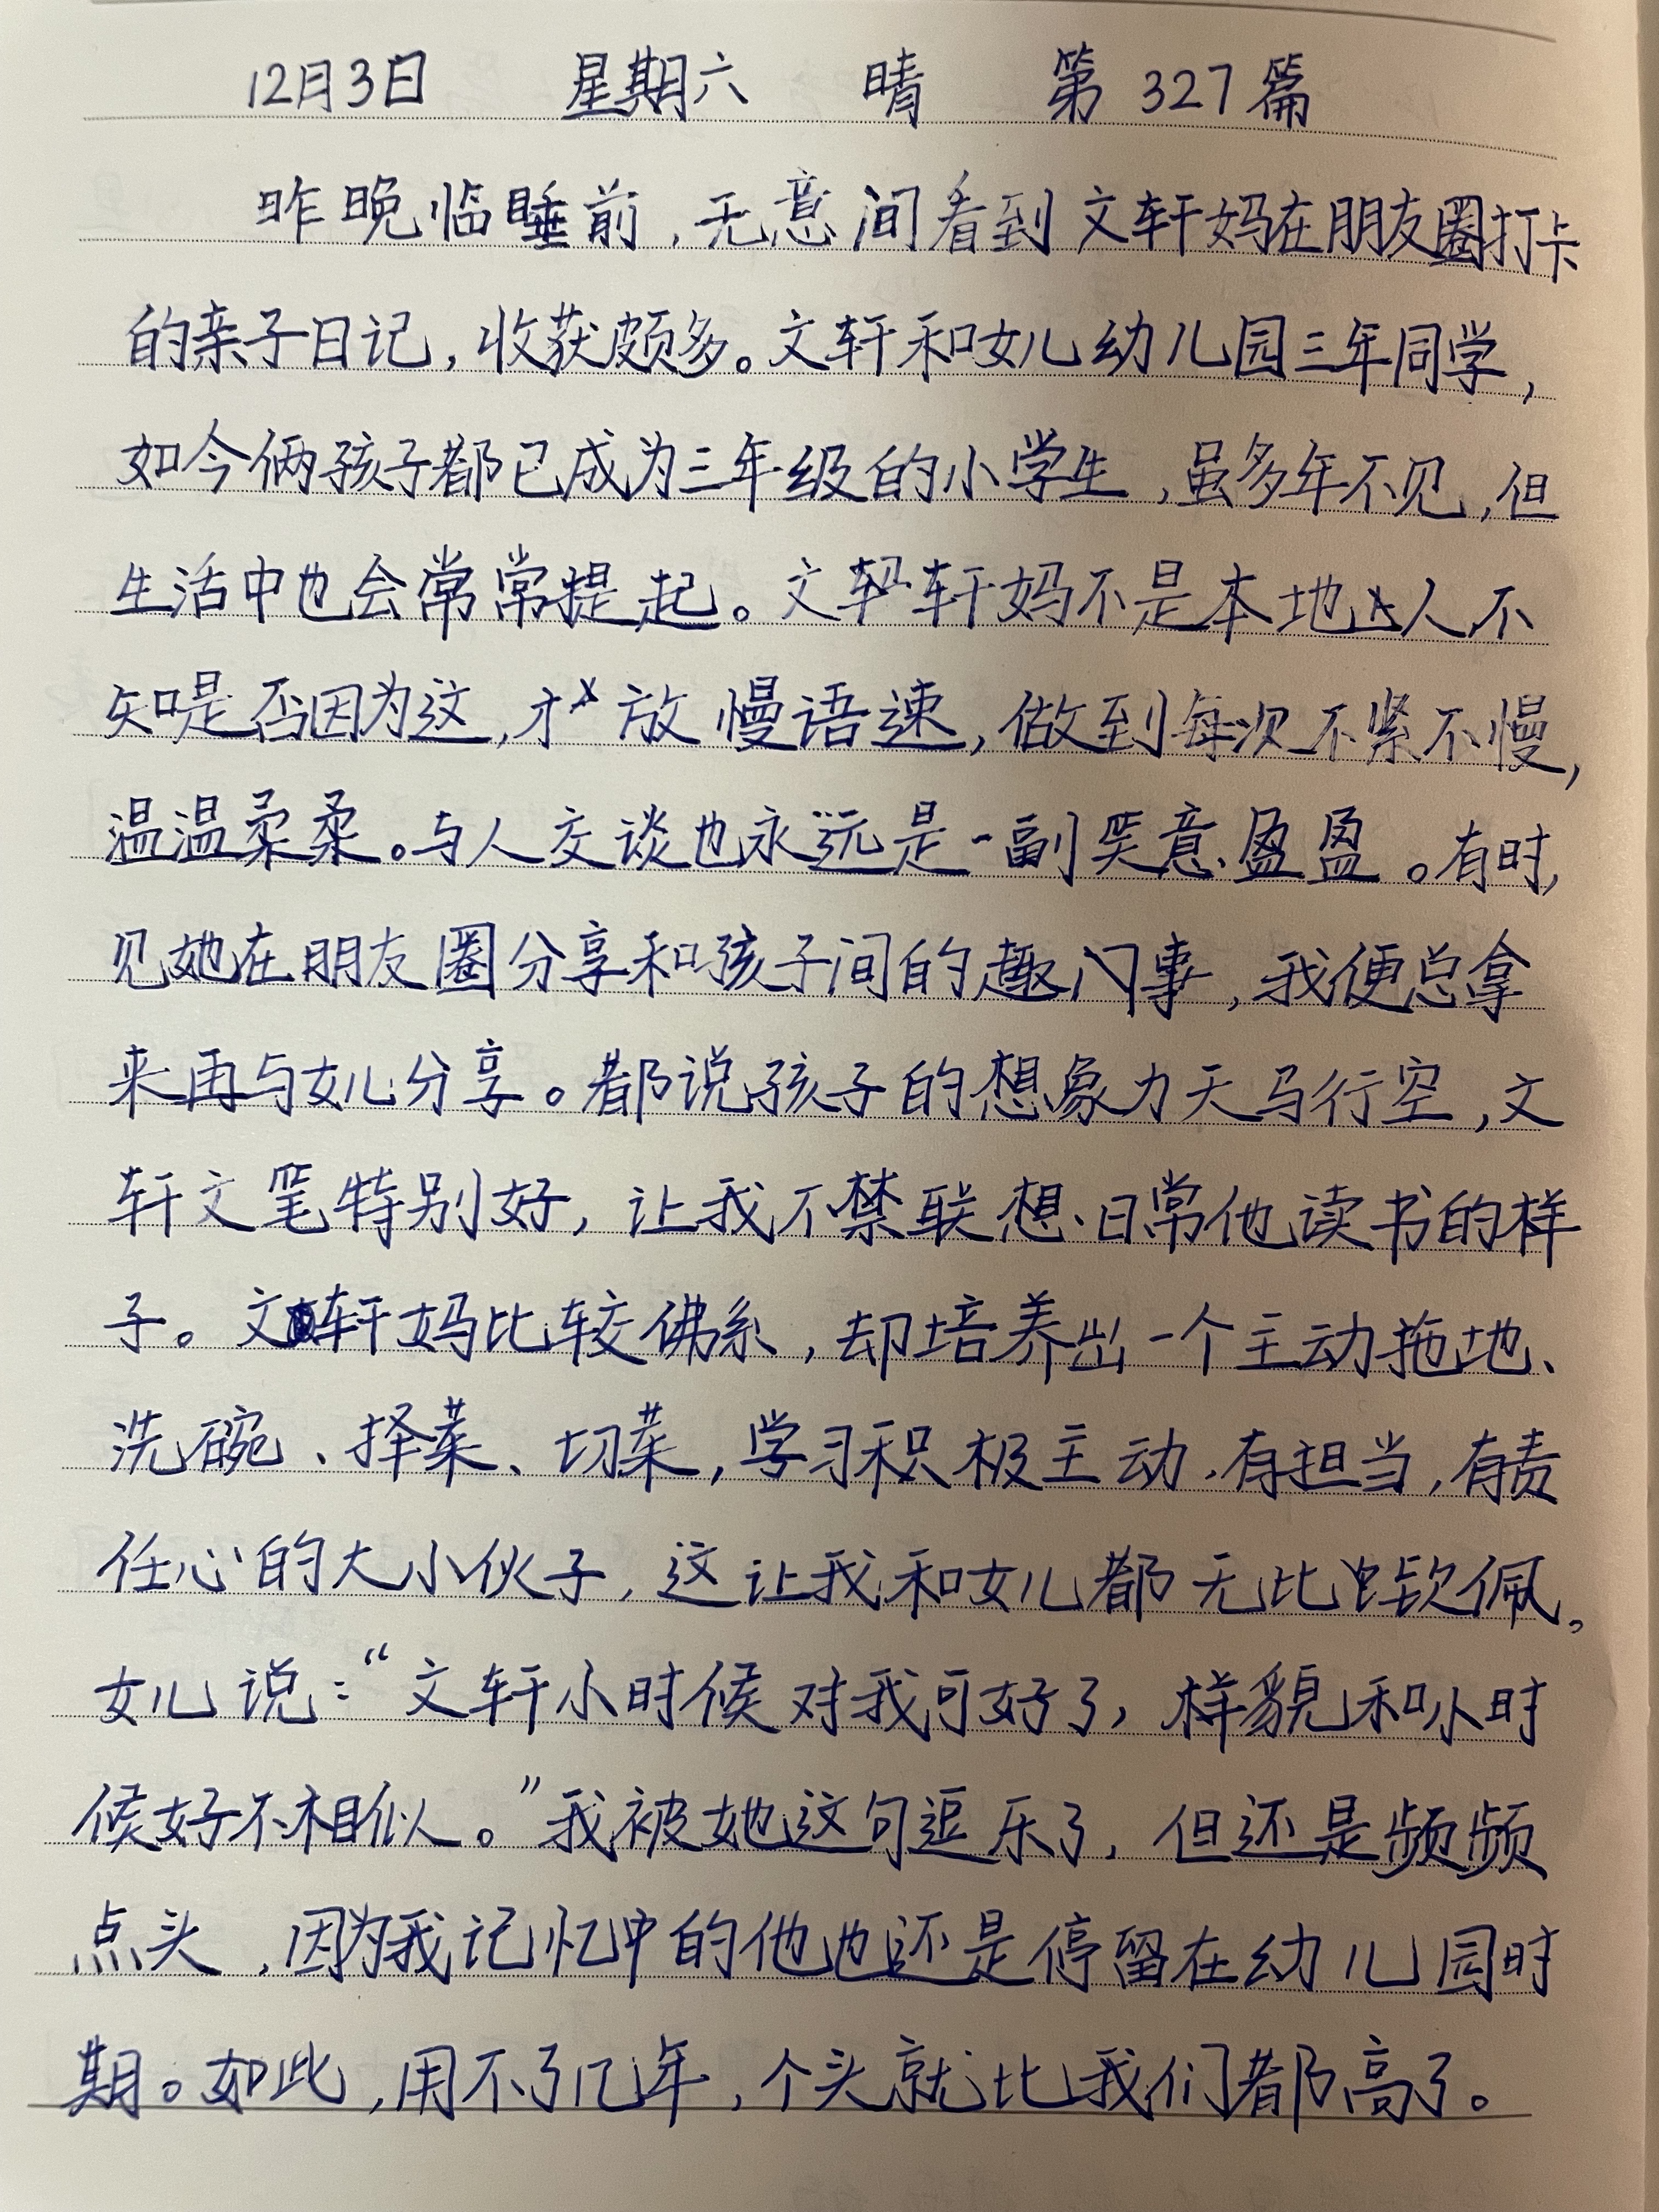 12月3日 星期六 晴 第327篇
昨晚临睡前,无意间看到文轩妈在朋友圈打卡
的亲子日记,收获颇多。文轩和女儿幼儿园三年同学,
如今俩孩子都已成为三年级的小学生,虽多年不见,但
生活中也会常常提起。文轩妈不是本地人不
知是否因为这,才放慢语速,做到每次不紧不慢,
温温柔柔。与人交谈也永远是一副笑意盈盈。有时,
见她在朋友圈分享和孩子间的趣门事,我便总拿
来再与女儿分享。都说孩子的想象力天马行空,文
轩文笔特别好,让我不禁联想日常他读书的样
子。文轩妈比较佛系,却培养出一个主动拖地、
洗碗、择菜、切菜,学习积极主动,有担当,有责
任心的大小伙子,这让我和女儿都无比钦佩。
女儿说:“文轩小时候对我可好了,样貌和小时
候好不相似。”我被她这句逗乐了,但还是频频
点头,因为我记忆中的他也还是停留在幼儿园时
期。如此,用不了几年,个头就比我们都高了。